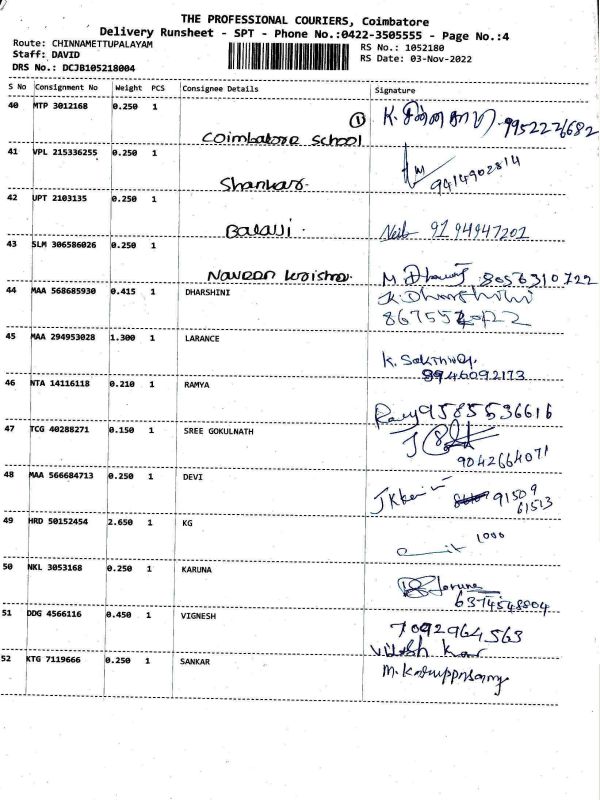 THE PROFESSIONAL COURIERS, Coimbatore
Delivery Runsheet - SPT - Phone No.:0422-3505555 - Page No.:4
Route: CHINNAMETTUPALAYAM RS No.: 1052180
Staff: DAVID RS Date: 03-Nov-2022
DRS No.: DCJB105218004
S No Consignment No Weight PCS Consignee Details Signature
40 MTP 3012168 0.250 1 ① K. 9952226682
Coimbatore School
41 VPL 215336255 0.250 1
Shankar. 9414902814
42 UPT 2103135 0.250 1
Balaji. 9194947201
43 SLM 306586026 0.250 1
Naveen Krishna. M. 8056310722
44 MAA 568685930 0.415 1 DHARSHINI K. Dharshini
45 MAA 294953028 1.300 1 LARANCE
K. Sakthivel
46092173
46 NTA 14116118 0.210 1 RAMYA
9585536616
47 TCG 40288271 0.150 1 SREE GOKULNATH
9042664071
48 MAA 566684713 0.250 1 DEVI
91509
61513
49 HRD 50152454 2.650 1 KG
1000
50 NKL 3053168 0.250 1 KARUNA
6374548804
51 DDG 4566116 0.450 1 VIGNESH
7092964563
52 KTG 7119666 0.250 1 SANKAR
M. Karuppasamy